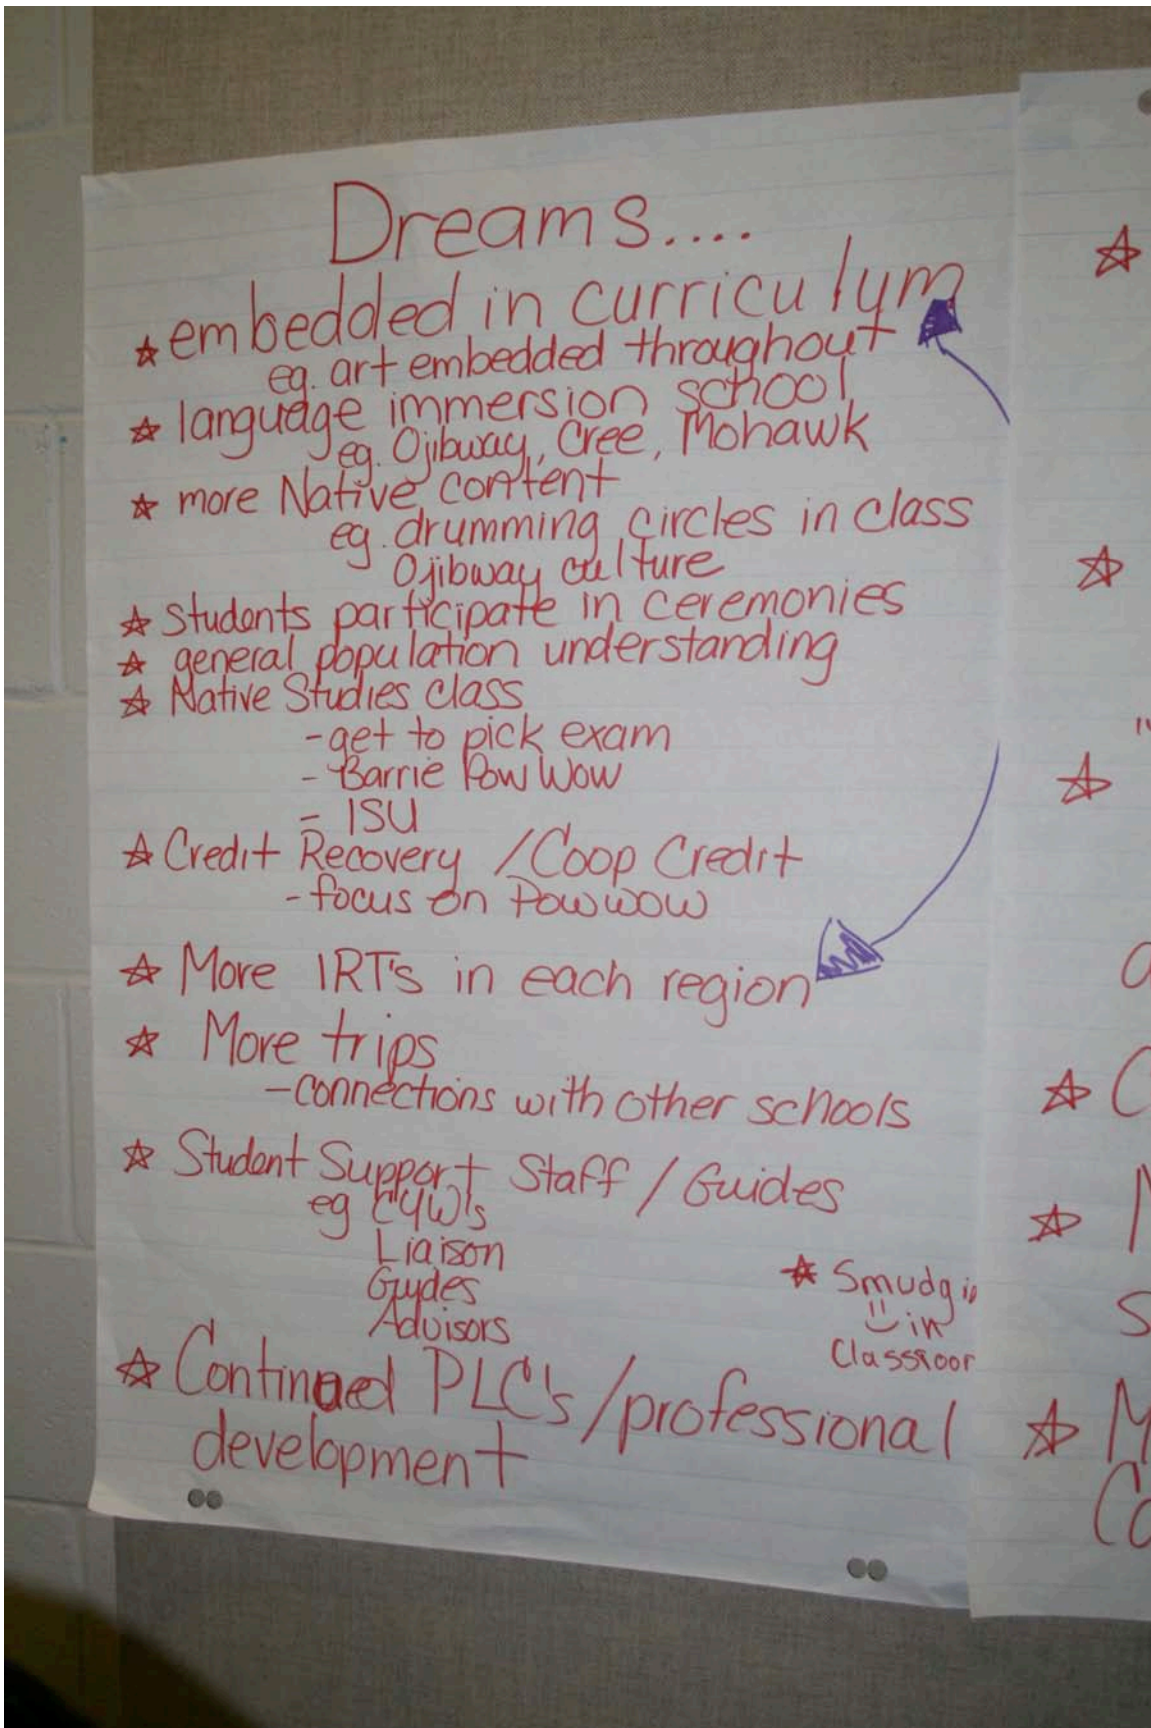 Dreams....
☆ embedded in curriculum
eg. art embedded throughout
☆ language immersion school
eg. Ojibway, Cree, Mohawk
☆ more Native content
eg. drumming circles in class
Ojibway culture
☆ Students participate in ceremonies
☆ general population understanding
☆ Native Studies class
- get to pick exam
- Barrie Pow Wow
- ISU
☆ Credit Recovery / Coop Credit
- focus on Powwow
☆ More IRT's in each region
☆ More trips
- connections with other schools
☆ Student Support Staff / Guides
eg CYW's
Liaison
Guides
Advisors
☆ Smudgin
in
Classroom
☆ Continued PLC's / professional
development